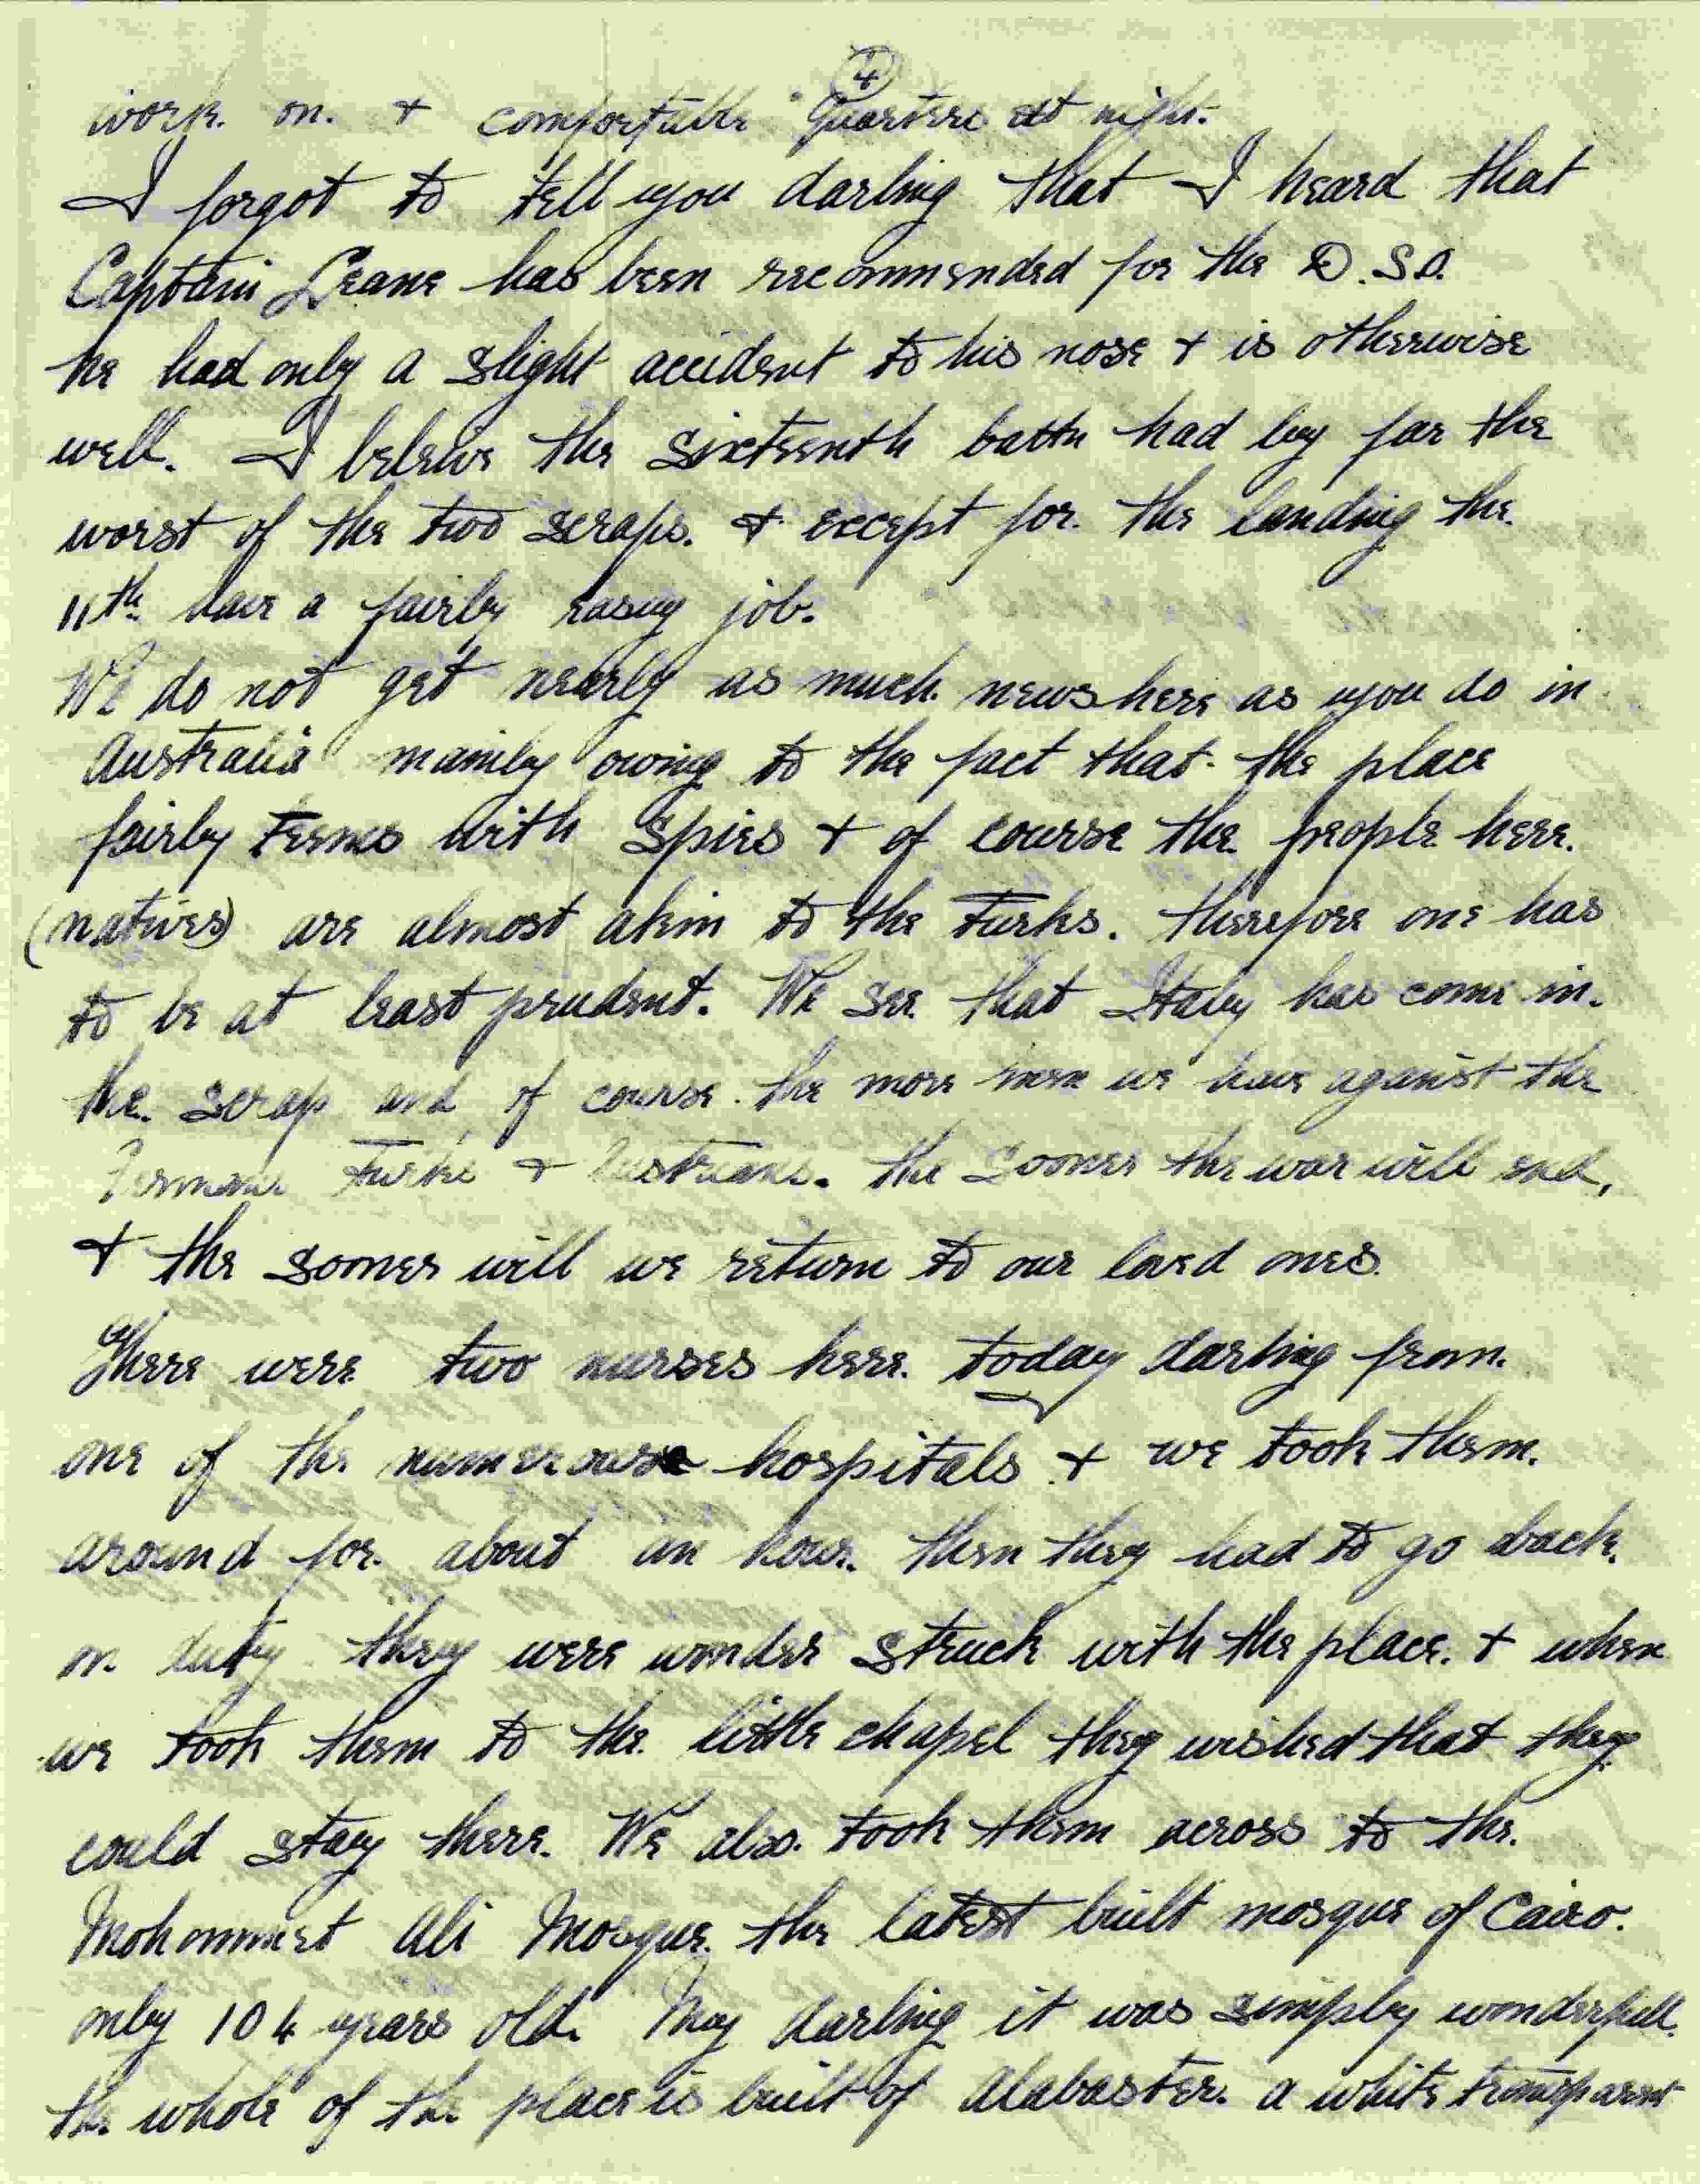 4
work on. & comfortable Quarters at night.
I forgot to tell you darling that I heard that
Captain Leane has been recommended for the D.S.O.
he had only a slight accident to his nose & is otherwise
well. I beleive the Sixteenth battn had by far the
worst of the two scraps. & except for the landing the
11th have a fairly easy job.
We do not get nearly as much news here as you do in
Australia mainly owing to the fact that the place
fairly teems with Spies & of course the people here.
(natives) are almost akin to the Turks. therefore one has
to be at least prudent. We see that Italy has come in.
the scrap and of course the more men we have against the
Germans Turks & Austrians. the sooner the war will end,
& the sooner will we return to our loved ones.
There were two nurses here today darling from
one of the numerous hospitals & we took them.
around for about an hour. then they had to go back.
on duty they were wonder struck with the place. & when
we took them to the little chapel they wished that they
could stay there. We also took them across to the.
Mohommet Ali Mosque. the latest built mosque of Cairo.
only 104 years old. My darling it was simply wonderfull.
the whole of the place is built of Alabaster. a white transparent